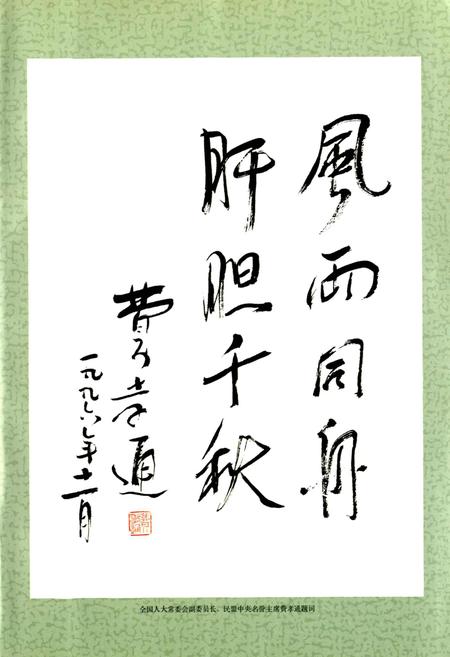 風雨同舟
肝胆千秋
費孝通
一九九六年十一月
全国人大常委会副委员长、民盟中央名誉主席费孝通题词